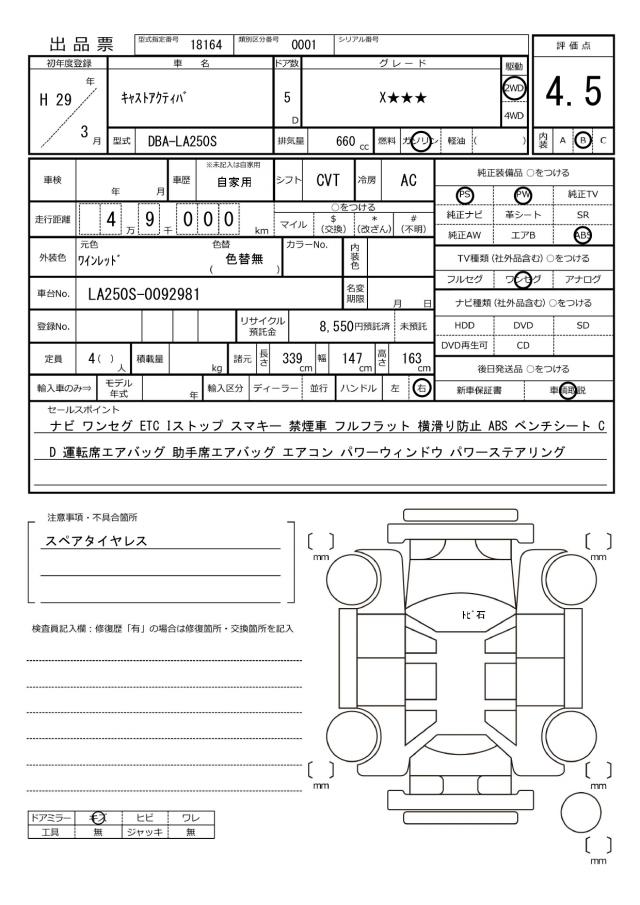 出品票 型式指定番号 18164 類別区分番号 0001 シリアル番号
評価点
初年度登録 車名 ドア数 グレード 駆動
H 29 年 ｷｬｽﾄｱｸﾃｨﾊﾞ 5 D X★★★ 2WD 4WD
4.5
3 月 型式 DBA-LA250S 排気量 660 cc 燃料 ガソリン 軽油 ( )
内装 A B C
車検 年 月 車歴 ※未記入は自家用 自家用 シフト CVT 冷房 AC
純正装備品 ○をつける
PS PW 純正TV
純正ナビ 革シート SR
純正AW エアB ABS
走行距離 4 万 9 千 0 0 0 km ○をつける
マイル $(交換) *(改ざん) #(不明)
外装色 元色 ﾜｲﾝﾚｯﾄﾞ 色替 ( 色替無 ) カラーNo. 内装色
TV種類 (社外品含む) ○をつける
フルセグ ワンセグ アナログ
車台No. LA250S-0092981 名変期限 月 日
ナビ種類 (社外品含む) ○をつける
HDD DVD SD
DVD再生可 CD
登録No. リサイクル預託金 8,550円預託済 未預託
定員 4 ( ) 人 積載量 kg 諸元 長さ 339 cm 幅 147 cm 高さ 163 cm
後日発送品 ○をつける
新車保証書 車輌取説
輸入車のみ⇒ モデル年式 年 輸入区分 ディーラー 並行 ハンドル 左 右
セールスポイント
ナビ ワンセグ ETC Iストップ スマキー 禁煙車 フルフラット 横滑り防止 ABS ベンチシート C
D 運転席エアバッグ 助手席エアバッグ エアコン パワーウィンドウ パワーステアリング
注意事項・不具合箇所
スペアタイヤレス
検査員記入欄：修復歴「有」の場合は修復箇所・交換箇所を記入
mm
mm
ﾄﾋﾞ石
mm
mm
mm
ドアミラー キズ ヒビ ワレ
工具 無 ジャッキ 無